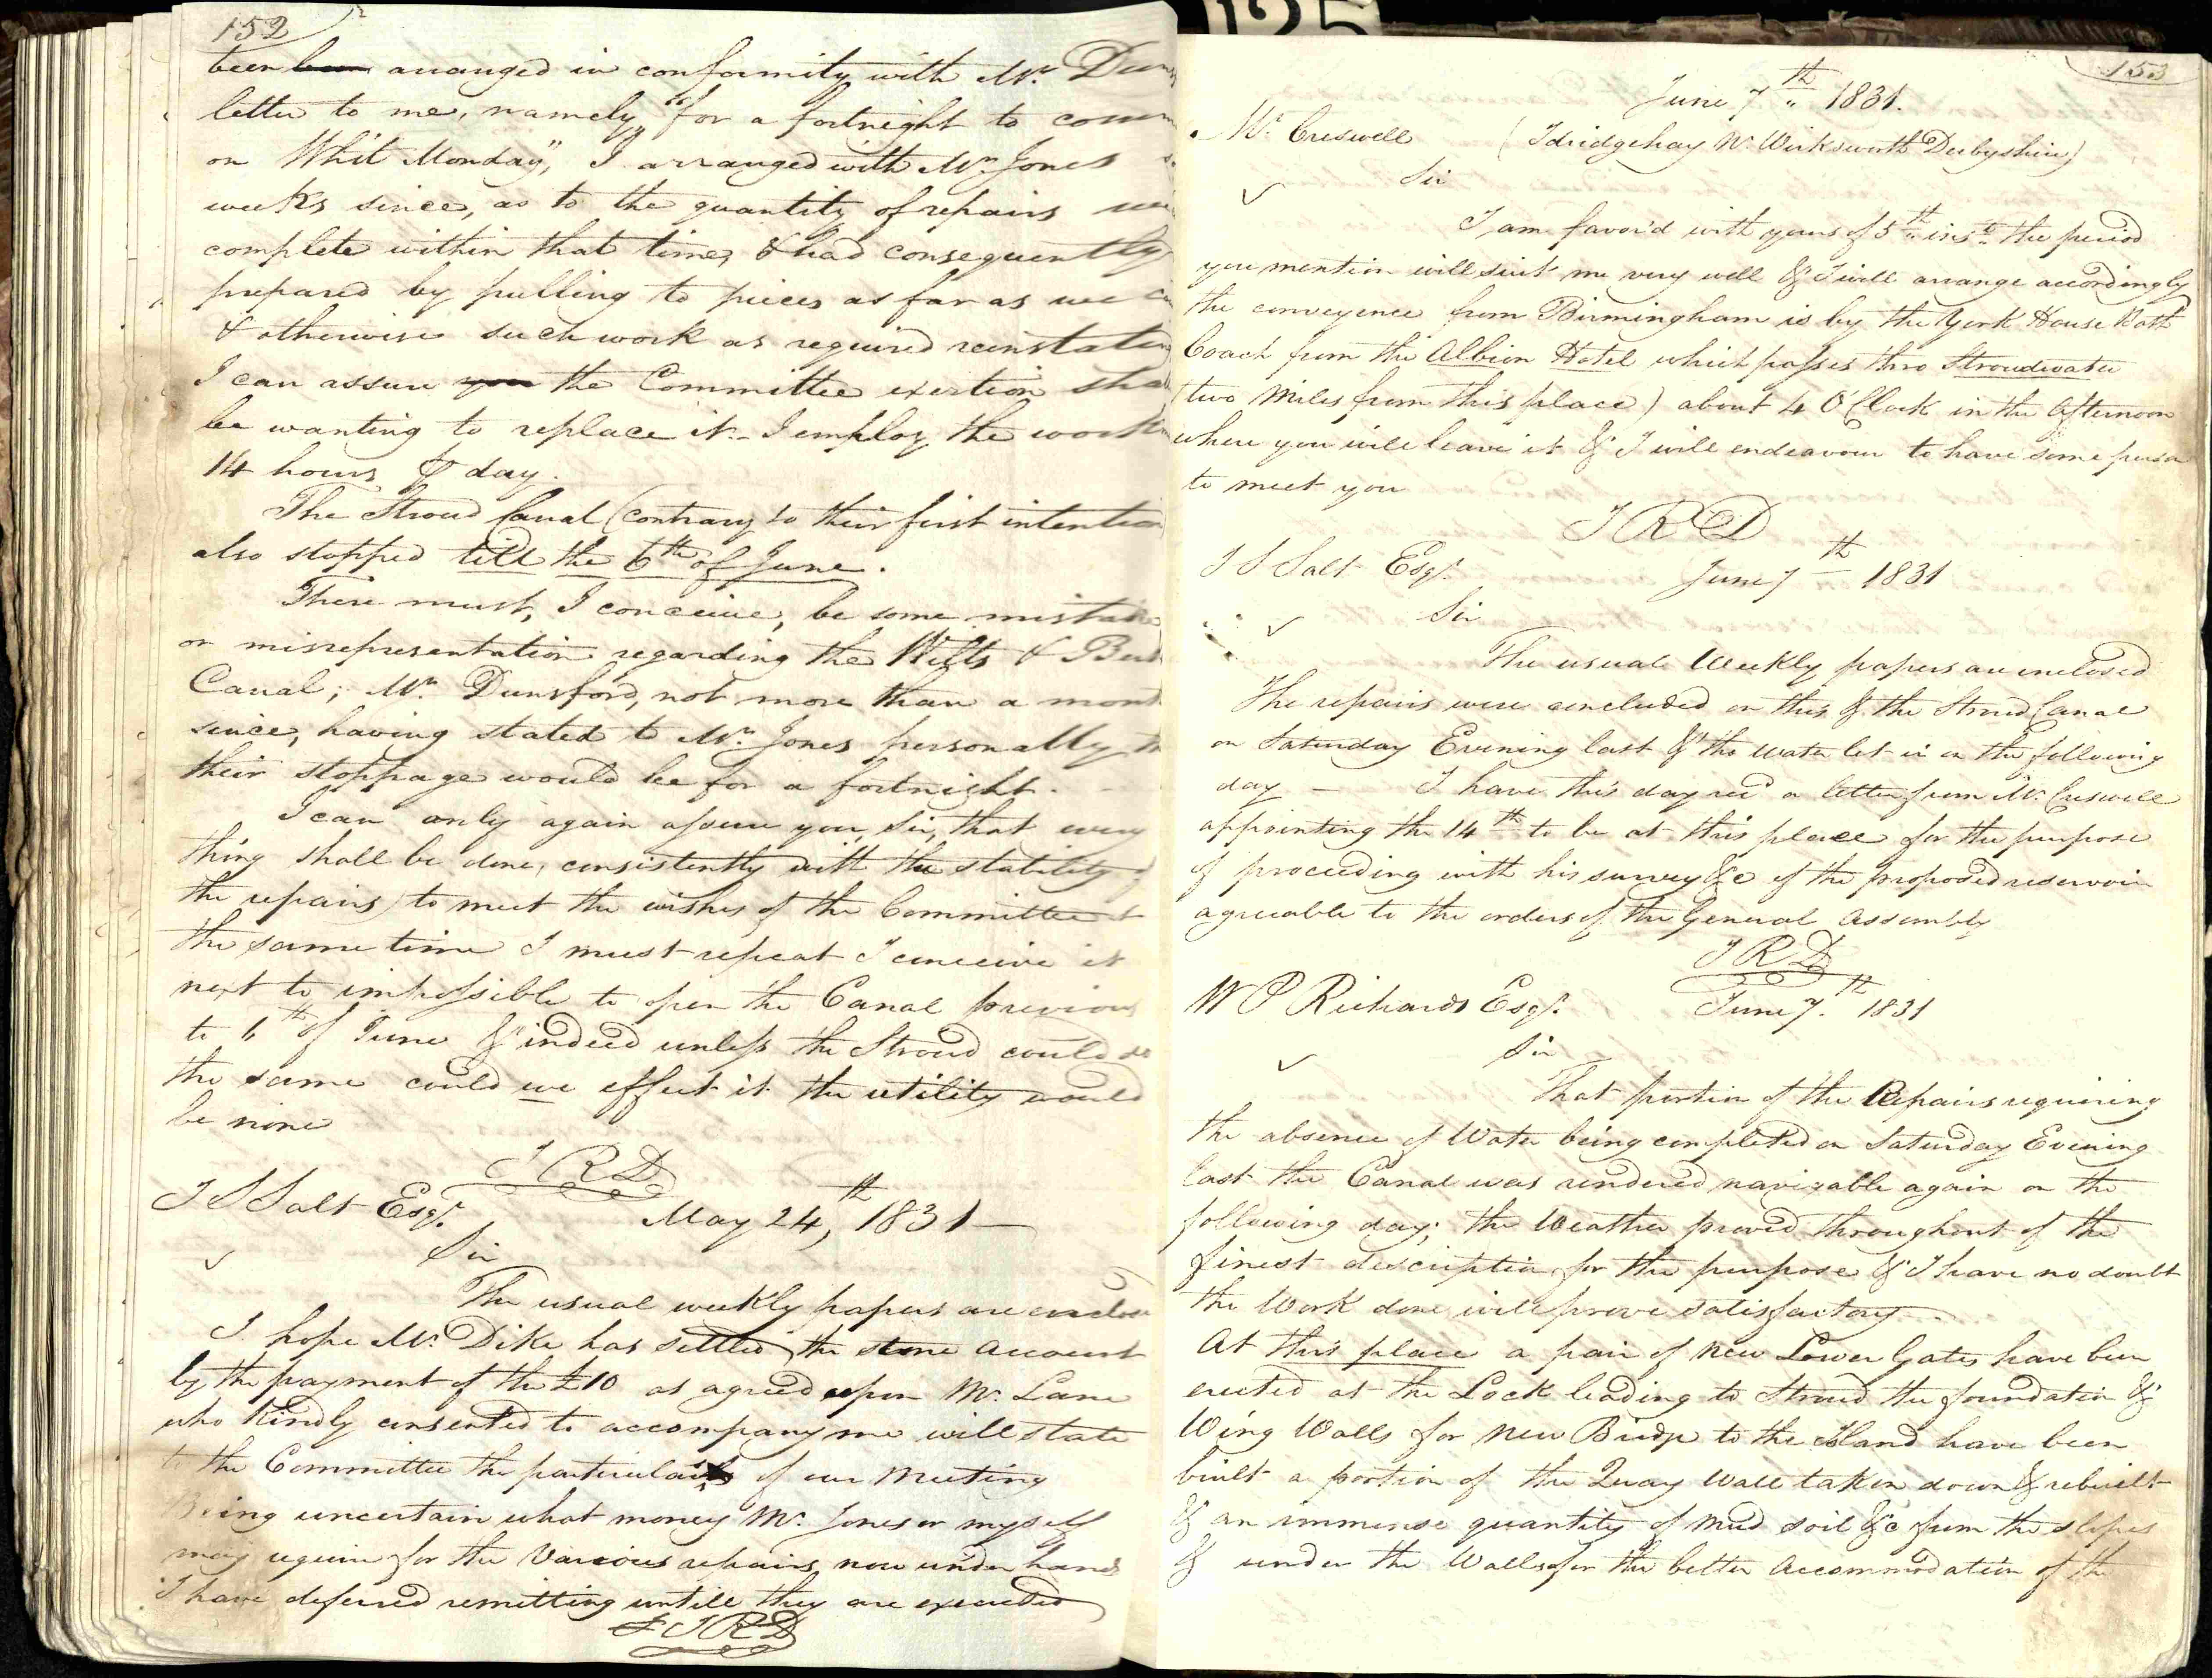 152
been been arranged in conformity with Mr. Duns
letter to me, namely "for a fortnight to comm
on Whit Monday", I arranged with Mr. Jones
weeks since, as to the quantity of repairs
complete within that time, & had consequently
prepared by pulling to pieces as far as we
& otherwise such work as required reinstating
I can assure you the Committee exertion sha
be wanting to replace it. - I employ the work
14 hours ⅌ day.
The Stroud Canal (contrary to their first intention
also stopped till the 6th of June.
There must, I conceive, be some mistake
or misrepresentation regarding the Wilts & Berk
Canal; Mr. Dunsford, not more than a mont
since, having stated to Mr. Jones personally
their stoppage would be for a fortnight. -
I can only again assure you, Sir, that every
thing shall be done, consistently with the stability
the repairs, to meet the wishes of the Committee
the same time I must repeat I conceive it
next to impossible to open the Canal previous
to 6th of June & indeed unless the Stroud could do
the same could we effect it the utility would
be none
I R D
J S Salt Esqr. May 24th, 1831
Sir
The usual weekly papers are enclose
I hope Mr. Dike has settled the stone Account
by the payment of the £10 as agreed upon Mr. Lane
who kindly consented to accompany me will state
to the Committee the particulars of our Meeting
Being uncertain what money Mr. Jones or myself
may require for the Various repairs now under hand
I have deferred remitting untill they are executed
I R D
153
June 7th 1831.
Mr. Creswell (Idridgehay Nr. Wirksworth Derbyshire)
Sir
I am favor'd with yours of 5th inst. the period
you mention will suit me very well & I will arrange accordingly
the conveyence from Birmingham is by the York House Bath
Coach from the Albion Hotel which passes thro Stroudwater
(two Miles from this place) about 4 O'Clock in the Afternoon
where you will leave it & I will endeavour to have some person
to meet you
I R D
J S Salt Esqr. June 7th 1831
Sir
The usual Weekly papers are inclosed
The repairs were concluded on this & the Stroud Canal
on Saturday Evening last & the water let in on the following
day - I have this day recd a letter from Mr. Creswell
appointing the 14th to be at this place for the purpose
of proceeding with his survey &c of the proposed reservoir
agreeable to the orders of the General Assembly
I R D
W P Richards Esqr. June 7th 1831
Sir
That portion of the Repairs requiring
the absence of Water being completed on Saturday Evening
last the Canal was rendered navigable again on the
following day; the Weather proved throughout of the
finest description for the purpose & I have no doubt
the Work done will prove satisfactory -
At this place a pair of New Lower Gates have been
erected at the Lock leading to Stroud the foundation &
Wing Walls for New Bridge to the Island have been
built a portion of the Quay Wall taken down & rebuilt
& an immense quantity of Mud soil &c from the slopes
& under the Walls for the better Accommodation of the